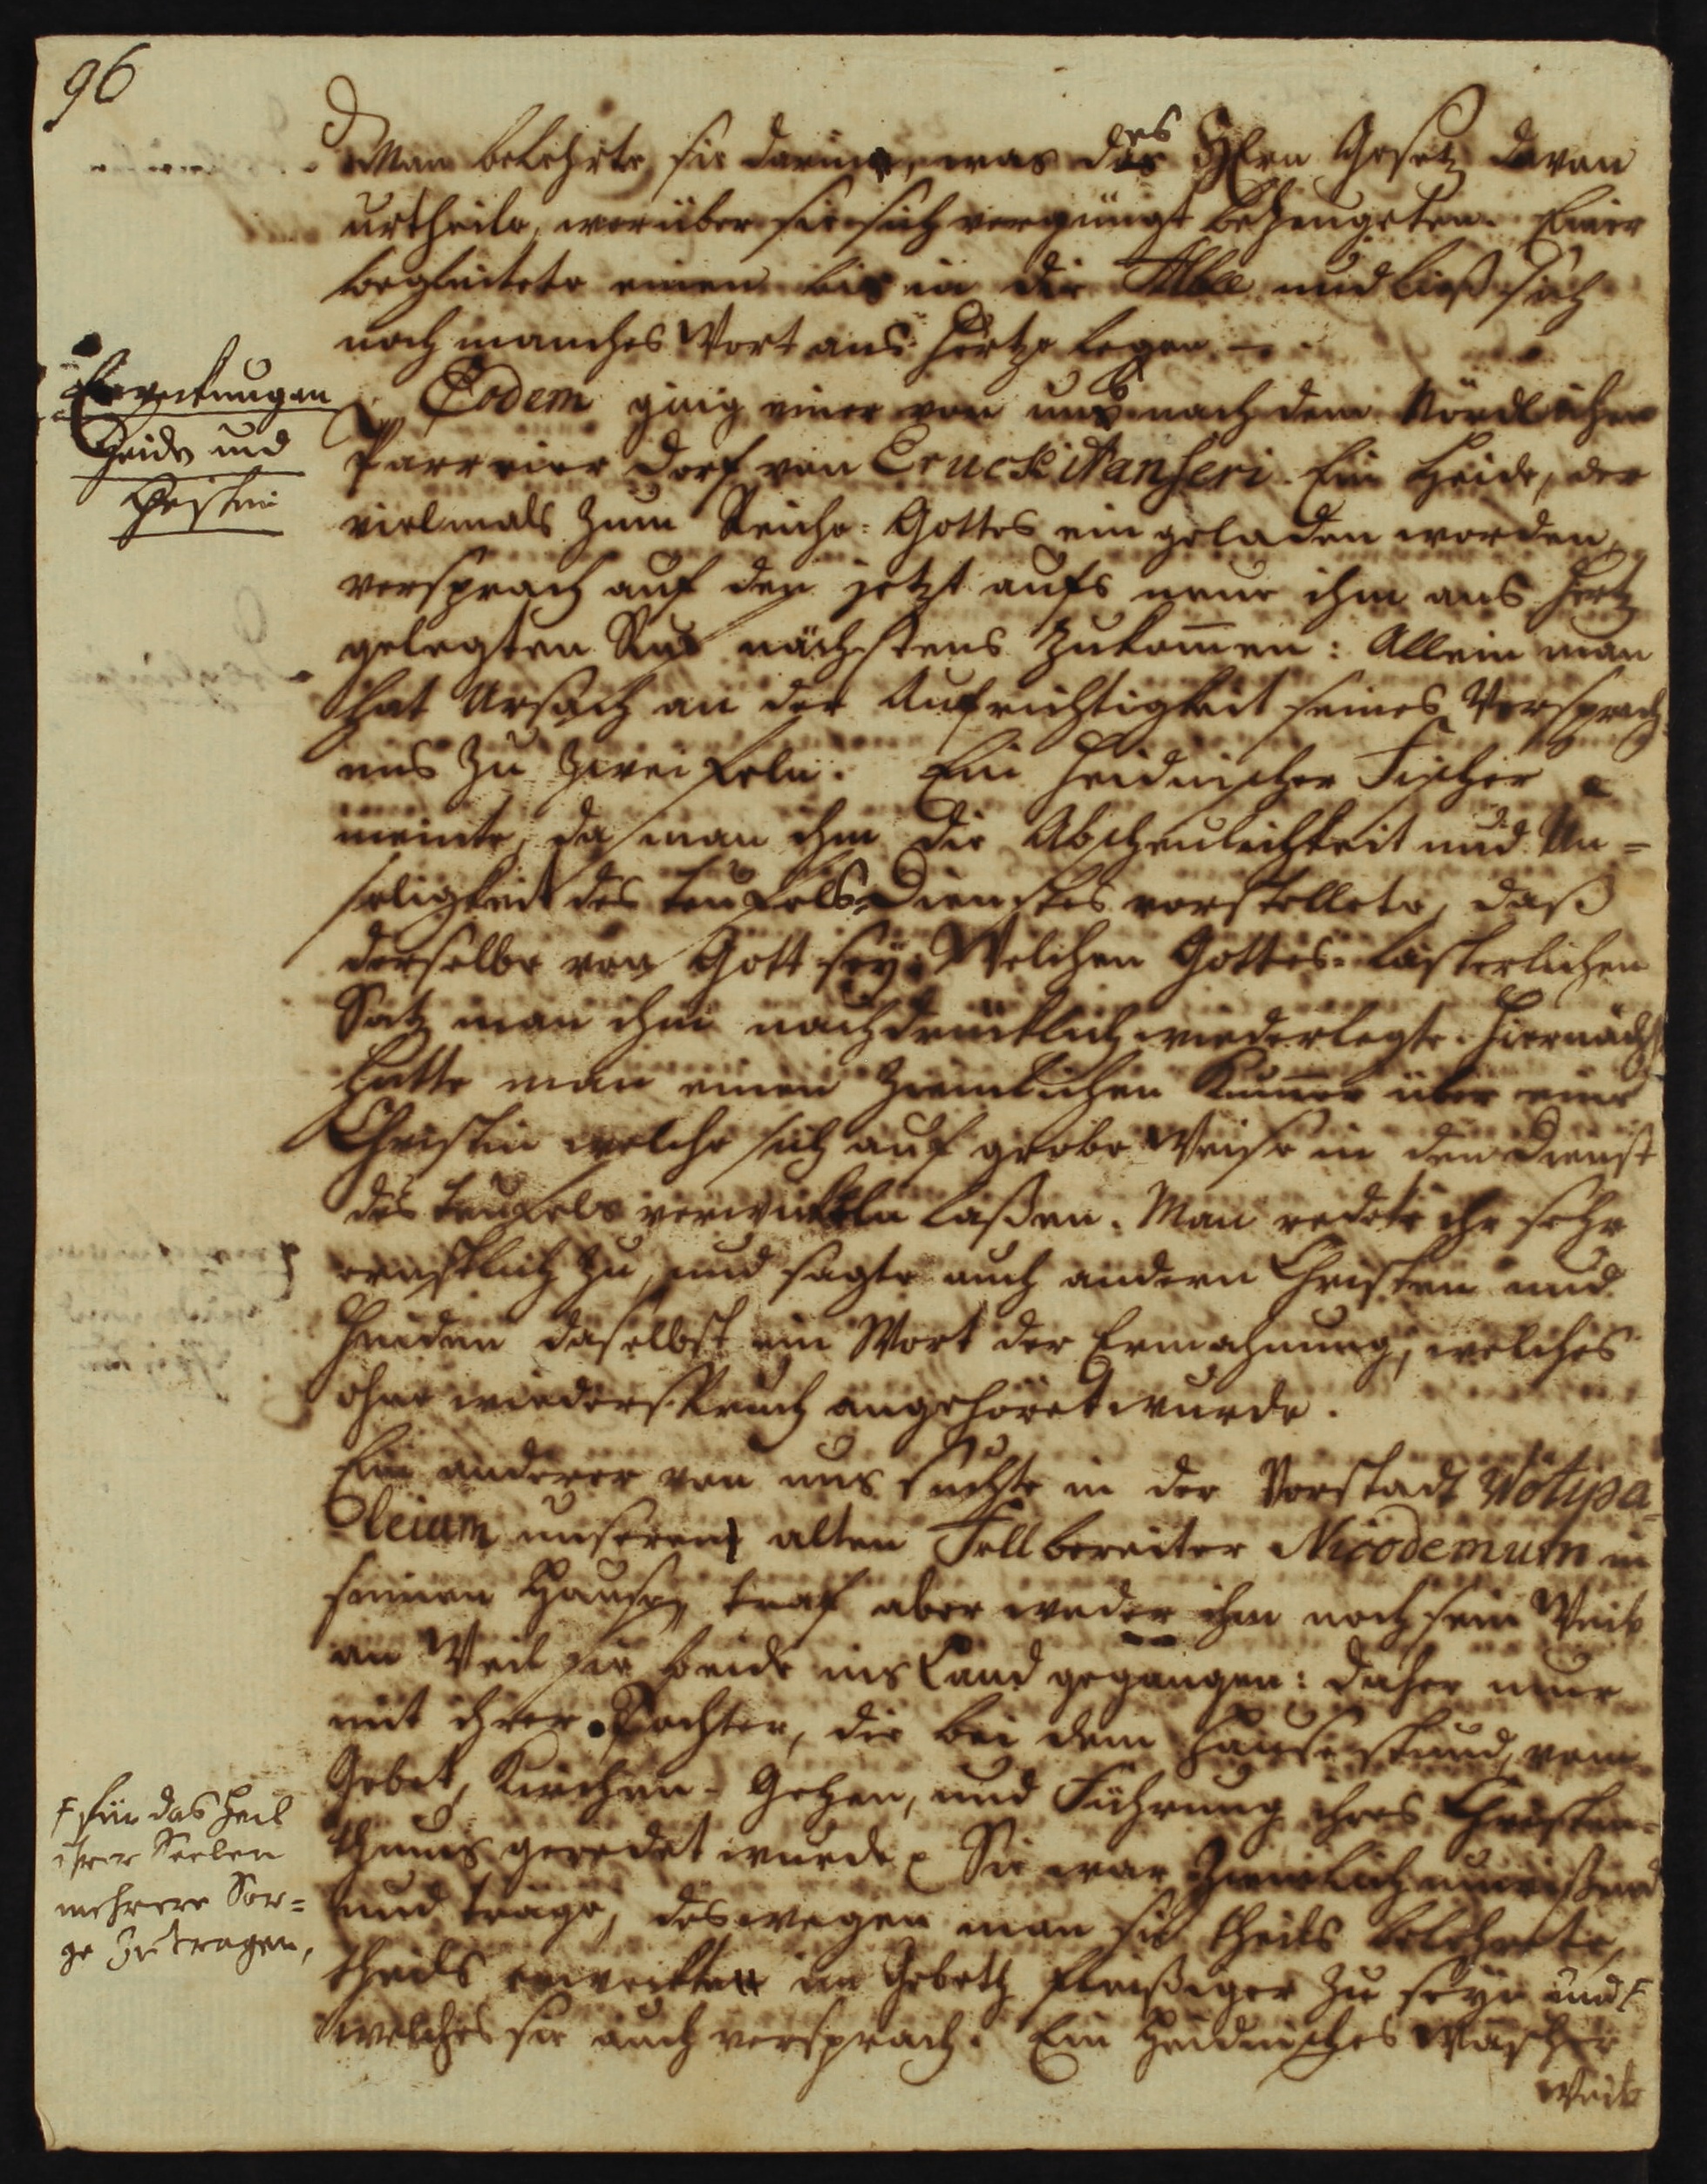 96
Man belehrte sie darin, was des HErn Gesetz davon
urtheile, worüber sie sich vergnügt bezeugeten. Einer
begleitete einen bis in die Allee und ließ sich
noch manches Wort ans Hertze legen.
Erweckungen
Heide und
Christin
Eodem ging einer von uns nach dem Nördlichen
Parreier Dorf von Eruckitanseri. Ein Heide, der
vielmals zum Reiche Gottes ein geladen worden,
versprach auf den jetzt aufs neue ihm ans Hertz
gelegten Ruf nächstens zukom̄en: Allein man
hat Ursach an der Aufrichtigkeit seines Versprech-
ens zu zweifeln. Ein heidnischer Fischer
meinte, da man ihm die Abscheulichkeit und Un=
seligkeit des teufels Dienstes vorstellete, daß
derselbe von Gott sey: Welchen Gottes-lästerlichen
Satz man ihm nachdrücklich wiederlegte. Hiernächst
hatte man einen ziemlichen Kum̄er über eine
Christin welche sich auf grobe Weise in den Dienst
des teufels verwickeln laßen. Man redete ihr sehr
ernstlich zu, und sagte auch andern Christen und
Heiden daselbst ein Wort der Ermahnung, welches
ohne wiederspruch angehöret wurde.
Ein anderer von uns suchte in der Vorstadt Wolipa-
leiam unseren alten Fellbereiter Nicodemum in
seinen Hause, traf aber weder ihn noch sein Weib
an Weil sie beide ins Land gegangen: daher nur
mit ihrer Tochter, die bei dem Hause stund, vom
Gebet, Kirchen-Gehen, und Führung ihres Christen-
thums geredet wurde. Sie war ziemlich unwißend
und träge, deswegen man sie theils belehrete,
theils erweckte im Gebeth fleißiger zu seyn und F
welches sie auch versprach. Ein Heidnisches Wäscher
Weib
F für das Heil
ihrer Seelen
mehrere Sor=
ge zu tragen,